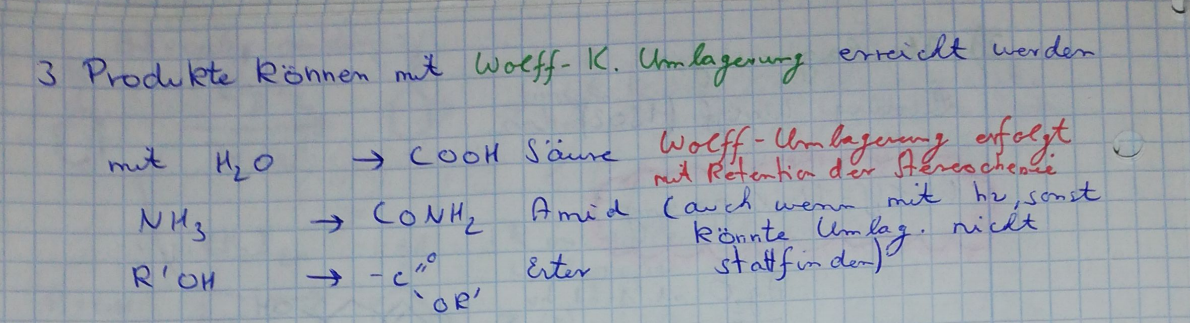 3 Produkte können mit Wolff-K. Umlagerung erreicht werden
mit H₂O → COOH Säure Wolff-Umlagerung erfolgt
mit Retention der Stereochemie
NH₃ → CONH₂ Amid (auch wenn mit hν, sonst
könnte Umlag. nicht
stattfinden)
R'OH → -C=O OR' Ester